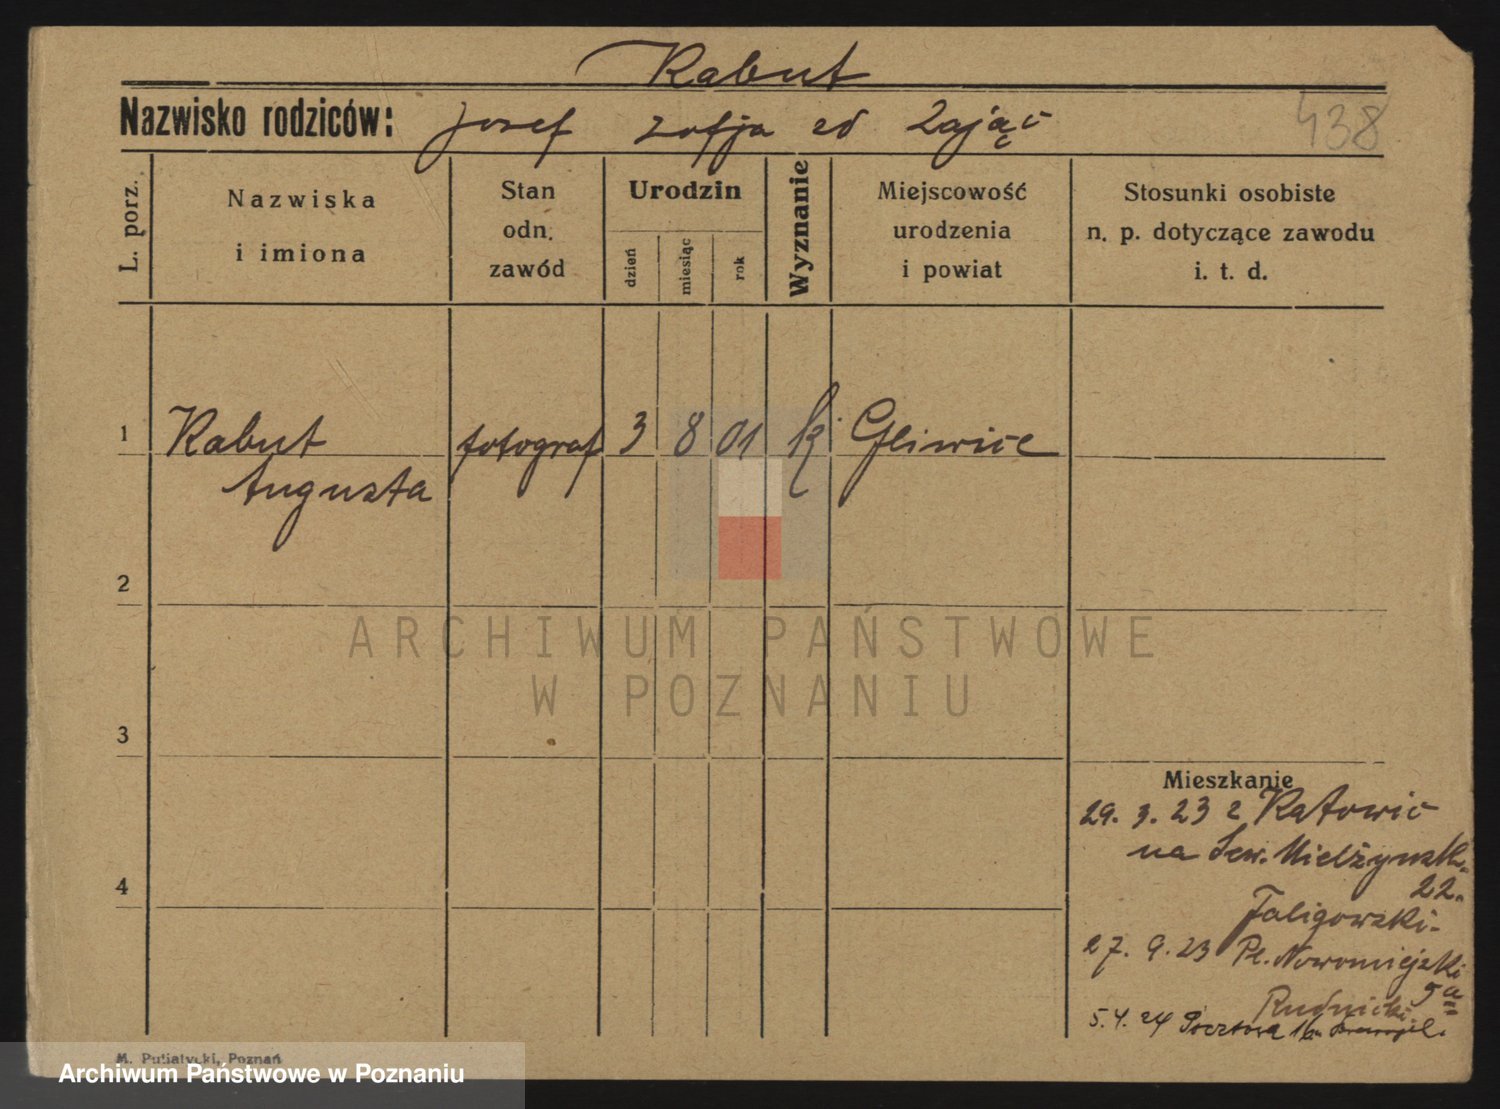 Kabut
Nazwisko rodziców: Josef Zofja zd Zając
438
L. porz.
Nazwiska
i imiona
Stan
odn.
zawód
Urodzin
dzień
miesiąc
rok
Wyznanie
Miejscowość
urodzenia
i powiat
Stosunki osobiste
n. p. dotyczące zawodu
i. t. d.
1 Kabut fotograf 3 8 01 k. Gliwice
Augusta
2
ARCHIWUM PAŃSTWOWE
W POZNANIU
3
Mieszkanie
29. 3. 23 z Katowic
na Sew. Mielżyńsk.
22.
4
Faligowski.
27. 9. 23 Pl. Nowomiejski
5a
Rudnicki
5. 4. 24 Pocztowa
M. Putiatycki, Poznań
Archiwum Państwowe w Poznaniu